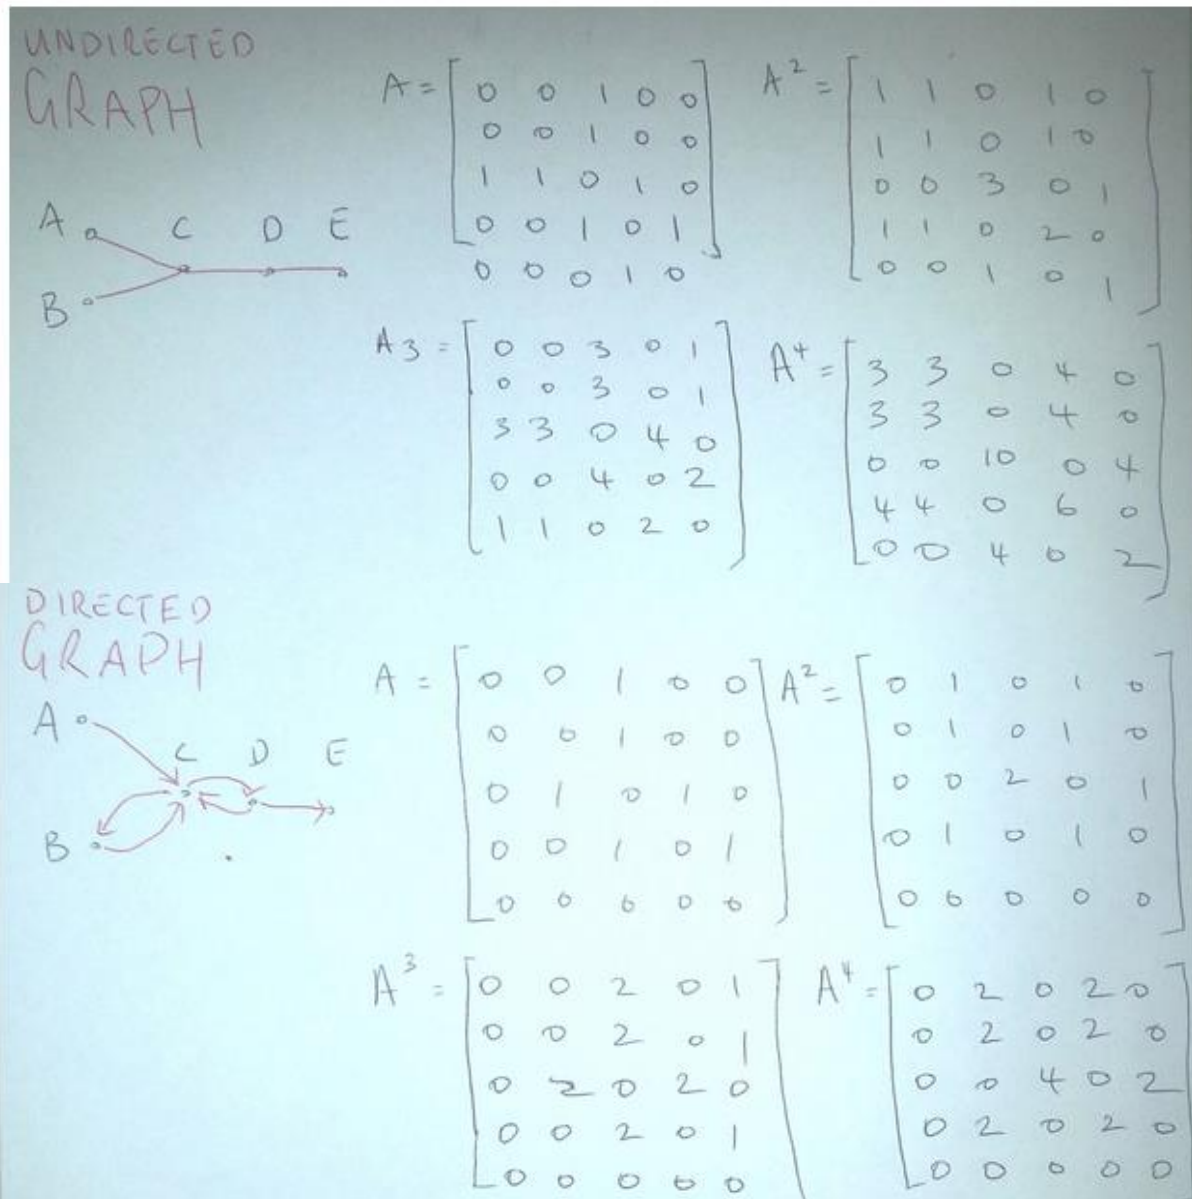 UNDIRECTED
GRAPH
A
B
C D E
A =
0 0 1 0 0
0 0 1 0 0
1 1 0 1 0
0 0 1 0 1
0 0 0 1 0
A² =
1 1 0 1 0
1 1 0 1 0
0 0 3 0 1
1 1 0 2 0
0 0 1 0 1
A3 =
0 0 3 0 1
0 0 3 0 1
3 3 0 4 0
0 0 4 0 2
1 1 0 2 0
A⁴ =
3 3 0 4 0
3 3 0 4 0
0 0 10 0 4
4 4 0 6 0
0 0 4 0 2
DIRECTED
GRAPH
A
B
C D E
A =
0 0 1 0 0
0 0 1 0 0
0 1 0 1 0
0 0 1 0 1
0 0 0 0 0
A² =
0 1 0 1 0
0 1 0 1 0
0 0 2 0 1
0 1 0 1 0
0 0 0 0 0
A³ =
0 0 2 0 1
0 0 2 0 1
0 2 0 2 0
0 0 2 0 1
0 0 0 0 0
A⁴ =
0 2 0 2 0
0 2 0 2 0
0 0 4 0 2
0 2 0 2 0
0 0 0 0 0